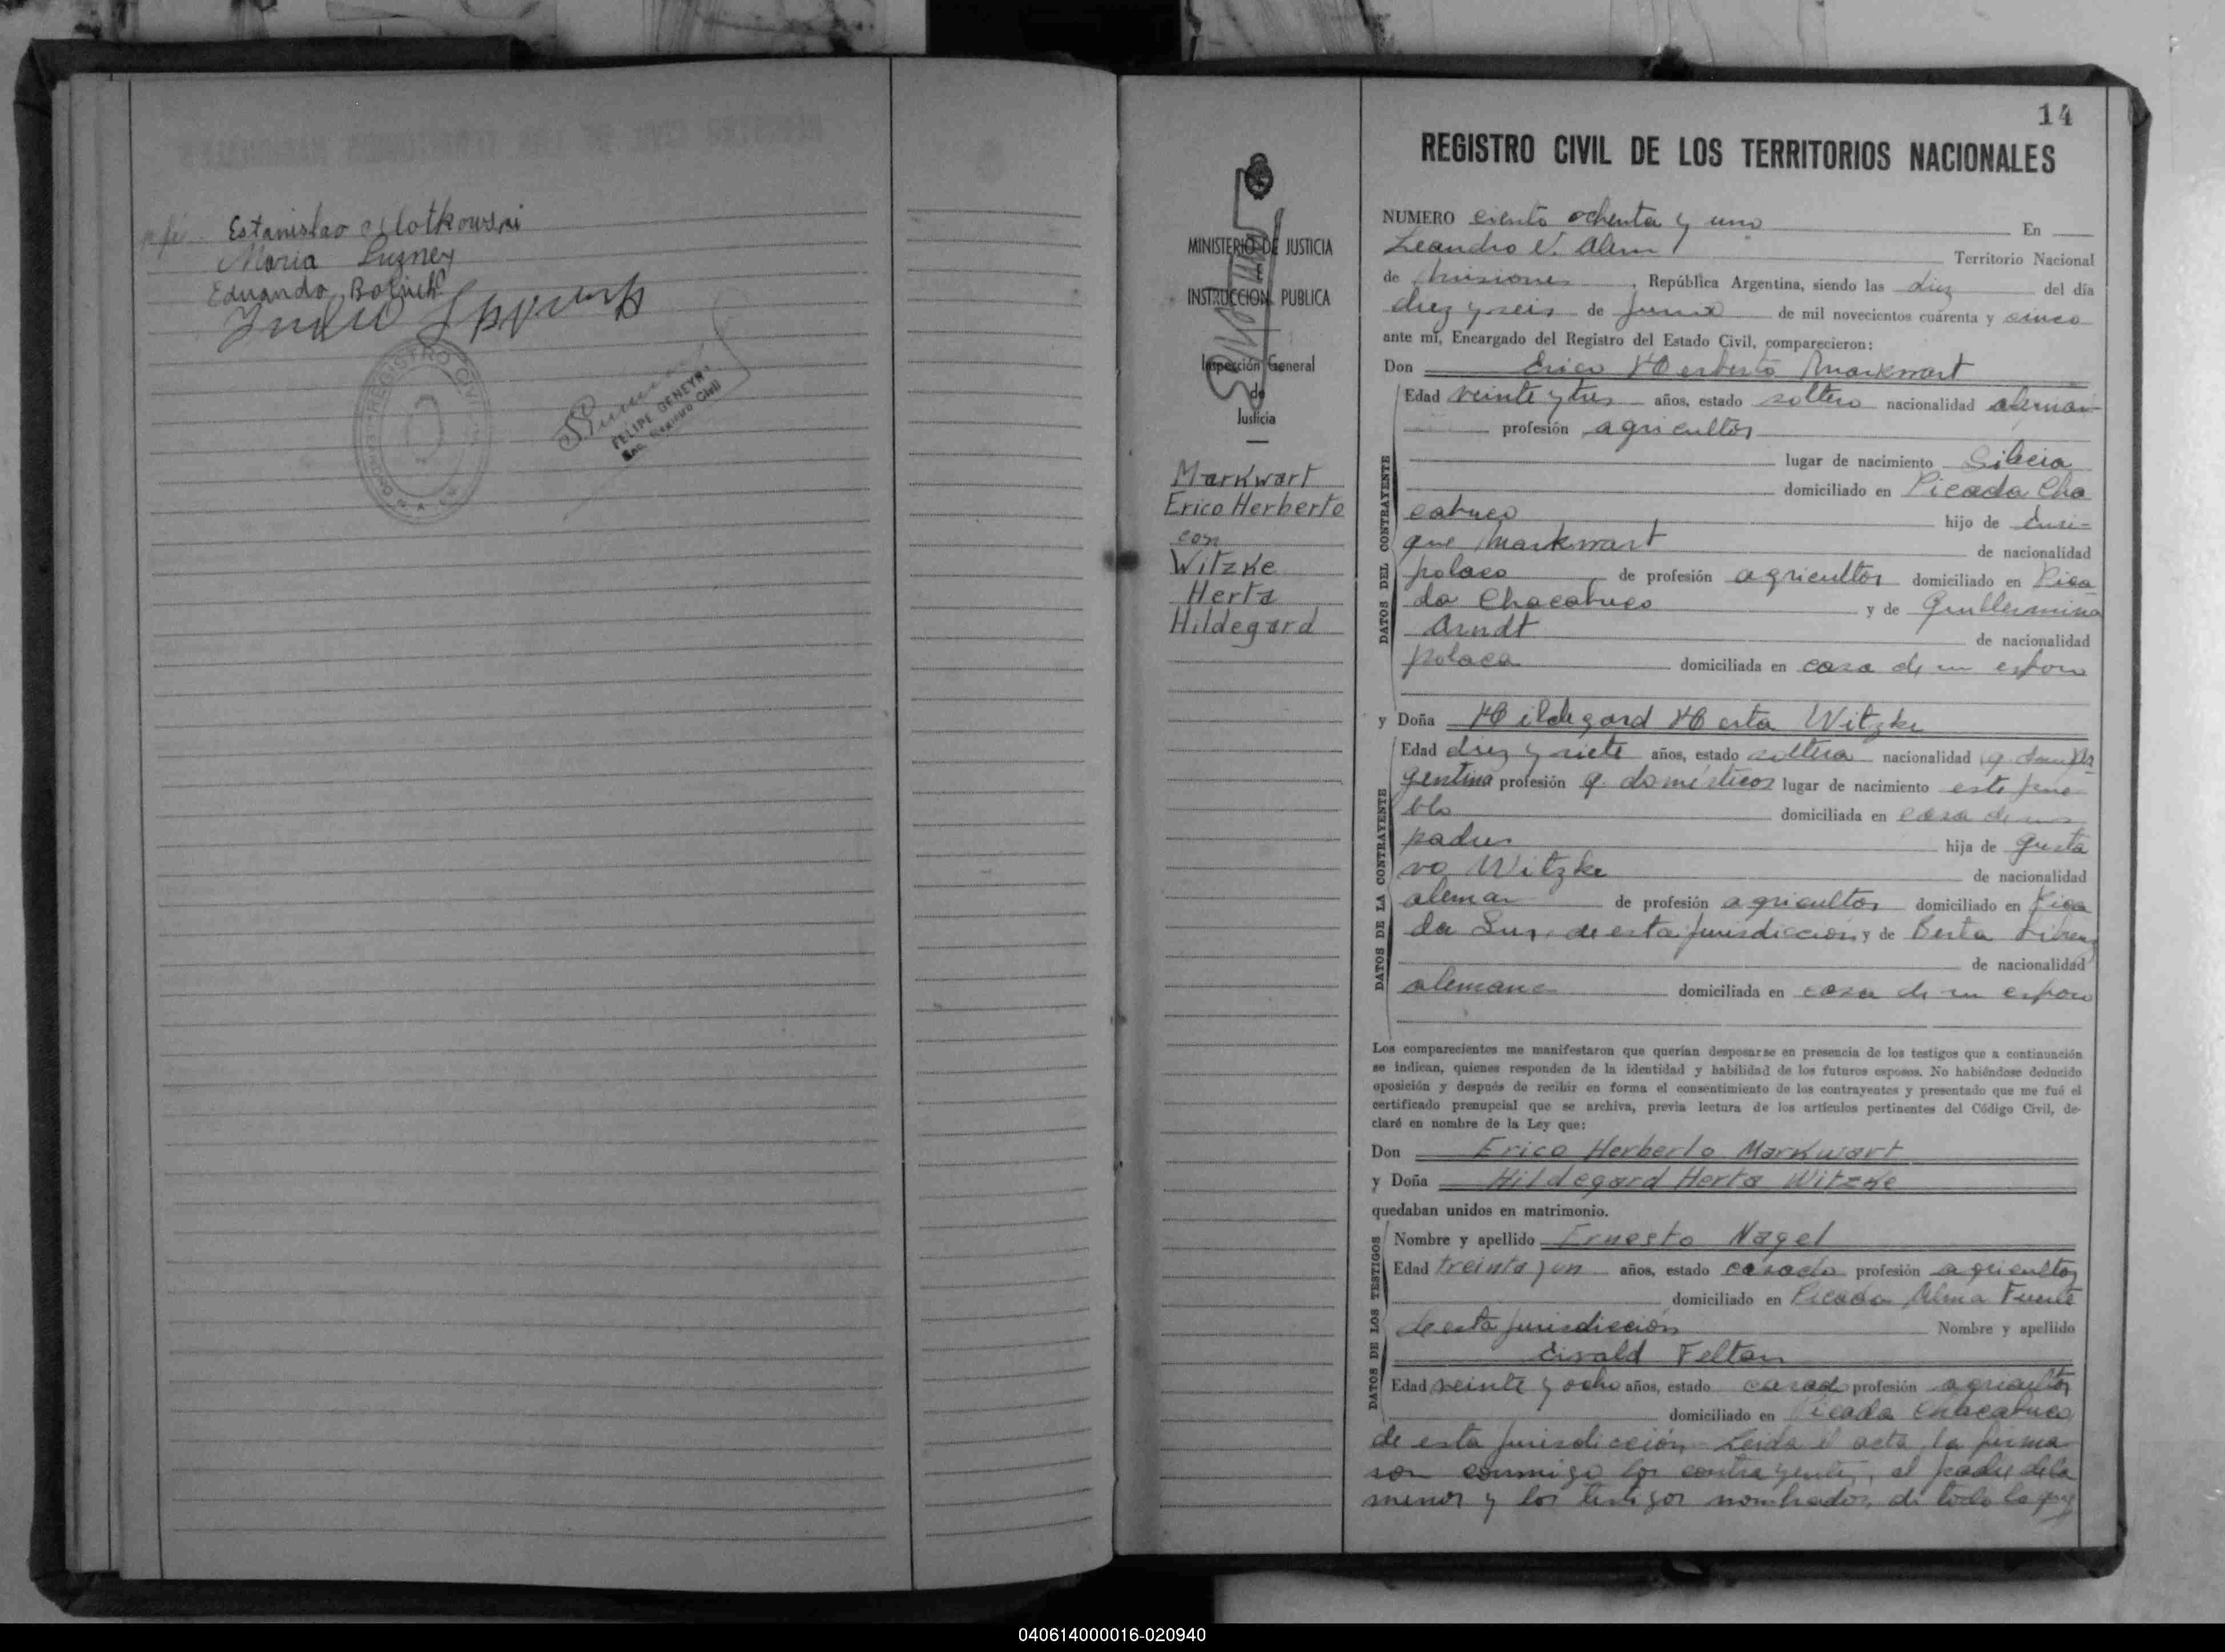 fé.
Estanislao Slotkowski
Maria Luzney
Eduardo
REGISTRO CIVIL
FELIPE GENEYRO
Enc. Registro Civil
14
REGISTRO CIVIL DE LOS TERRITORIOS NACIONALES
MINISTERIO DE JUSTICIA
E
INSTRUCCION PUBLICA
Inspección General
de
Justicia
Markwart
Erico Herberto
con
Witzke
Herta
Hildegard
NUMERO ciento ochenta y uno En
Leandro N. Alem Territorio Nacional
de Misiones, República Argentina, siendo las diez del día
diez y seis de Junio de mil novecientos cuarenta y cinco
ante mí, Encargado del Registro del Estado Civil, comparecieron:
Don Erico Herberto Markwart
DATOS DEL CONTRAYENTE
Edad veinte y tres años, estado soltero nacionalidad alemán
profesión agricultor
lugar de nacimiento Silecia
domiciliado en Picada Cha
cabuco hijo de Enri-
que Markwart de nacionalidad
polaco de profesión agricultor domiciliado en Pica
da Chacabuco y de Guillermina
Arndt de nacionalidad
polaca domiciliada en casa de su esposo
y Doña Hildegard Herta Witzke
DATOS DE LA CONTRAYENTE
Edad diez y siete años, estado soltera nacionalidad (q. dom) Ar
gentina profesión q. domésticos lugar de nacimiento este pue
blo domiciliada en casa de sus
padres hija de Gusta
vo Witzke de nacionalidad
aleman de profesión agricultor domiciliado en Pica
da Sur, de esta jurisdicción y de Berta
de nacionalidad
alemana domiciliada en casa de su esposo
Los comparecientes me manifestaron que querían desposarse en presencia de los testigos que a continuación
se indican, quienes responden de la identidad y habilidad de los futuros esposos. No habiéndose deducido
oposición y después de recibir en forma el consentimiento de los contrayentes y presentado que me fué el
certificado prenupcial que se archiva, previa lectura de los artículos pertinentes del Código Civil, de-
claré en nombre de la Ley que:
Don Erico Herberto Markwart
y Doña Hildegard Herta Witzke
quedaban unidos en matrimonio.
DATOS DE LOS TESTIGOS
Nombre y apellido Ernesto Nagel
Edad treinta y un años, estado casado profesión agricultor
domiciliado en Picada Alma Fuerte
de esta jurisdicción Nombre y apellido
Eivald Felten
Edad veinte y ocho años, estado casado profesión agricultor
domiciliado en Picada Chacabuco
de esta jurisdicción. Leida el acta, la firma
ron conmigo los contrayentes, el padre de la
menor y los testigos nombrados, de todo lo que
040614000016-020940